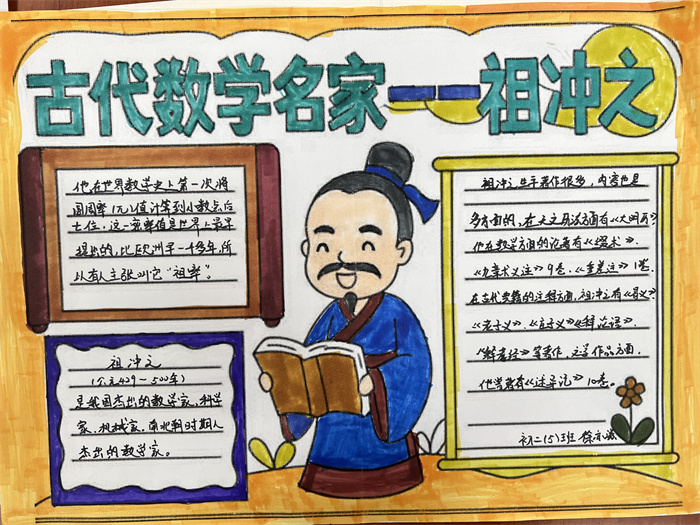 古代数学名家——祖冲之
他在世界数学史上第一次将
圆周率(π)值计算到小数点后
七位,这一密率值是世界上最早
提出的,比欧洲早一千多年,所
以有人主张叫它“祖率”。
祖冲之
(公元429-500年)
是我国杰出的数学家,科学
家,机械家,南北朝时期人
杰出的数学家。
祖冲之生平著作很多,内容也是
多方面的,在天文历法方面有《大明历》
他在数学方面的论著有《缀术》、
《九章术义注》9卷、《重差注》1卷,
在古代典籍的注释方面,祖冲之有《易义》
《老子义》、《庄子义》《释论语》、
《释孝经》等著作,文学作品方面,
他当著有《述异记》10卷。
初二(5)班